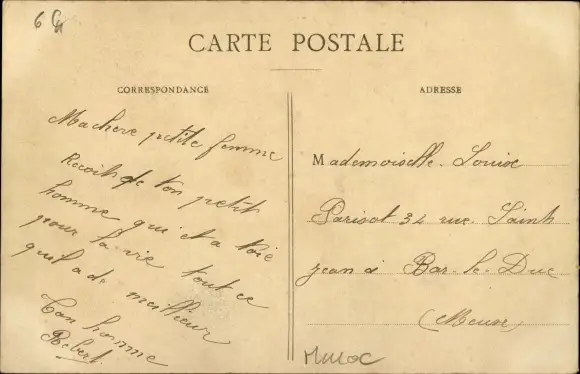 CARTE POSTALE
CORRESPONDANCE
Ma chere petite femme
Recoit de ton petit
homme qui et a toie
pour la vie tout ce
quil a de meilleur
Ton homme
Robert
ADRESSE
Mademoiselle Louise
Parisot 34 rue Saint
Jean a Bar-le-Duc
(Meuse)